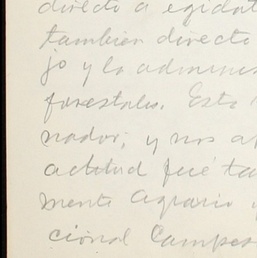 directo a ejidat
tambien directo
jo y la adminis
forestales. Esta
nador, y nos a
actitud fué ta
mente agrario y
cional Campes